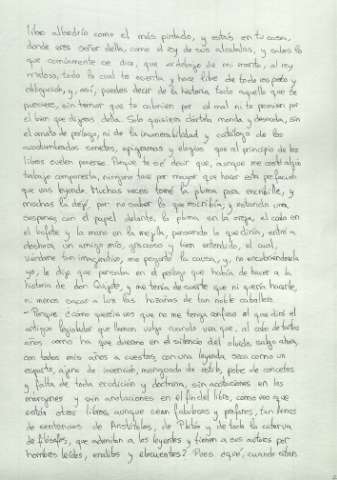 libre albedrío como el más pintado, y estás en tu casa,
donde eres señor della, como el rey de sus alcabalas, y sabes lo
que comúnmente se dice, que debajo de mi manto, al rey
mato, todo lo cual te esenta y hace libre de todo respecto y
obligación, y, así, puedes decir de la historia todo aquello que te
pareciere, sin temor que te calunien por el mal ni te premien por
el bien que dijeres della. Sólo quisiera dártela monda y desnuda, sin
el ornato de prólogo, ni de la inumerabilidad y catálogo de los
acostumbrados sonetos, epigramas y elogios que al principio de los
libros suelen ponerse. Porque te sé decir que, aunque me costó algún
trabajo componerla, ninguno tuve por mayor que hacer esta prefación
que vas leyendo. Muchas veces tomé la pluma para escribille, y
muchas la dejé, por no saber lo que escribiría; y estando una
suspenso, con el papel delante, la pluma en la oreja, el codo en
el bufete y la mano en la mejilla, pensando lo que diría, entró a
deshora un amigo mío, gracioso y bien entendido, el cual,
viéndome tan imaginativo, me preguntó la causa, y, no encubriéndosela
yo, le dije que pensaba en el prólogo que había de hacer a la
historia de don Quijote, y me tenía de suerte que ni quería hacerle,
ni menos sacar a luz las hazañas de tan noble caballero.
- Porque ¿cómo queréis vos que no me tenga confuso el qué dirá el
antiguo legislador que llaman vulgo cuando vea que, al cabo de tantos
años como ha que duermo en el silencio del olvido, salgo ahora,
con todos mis años a cuestas, con una leyenda seca como un
esparto, ajena de invención, menguada de estilo, pobre de concetos
y falta de toda erudición y doctrina, sin acotaciones en las
márgenes y sin anotaciones en el fin del libro, como veo que
están otros libros, aunque sean fabulosos y profanos, tan llenos
de sentencias de Aristóteles, de Platón y de toda la caterva
de filósofos, que admiran a los leyentes y tienen a sus autores por
hombres leídos, eruditos y elocuentes? Pues ¿qué, cuando citan